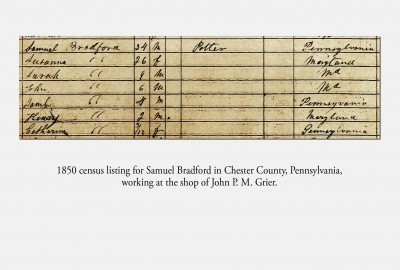 Samuel Bradford 34 M Potter Pennsylvania
Susanna " 26 f Maryland
Sarah " 9 Md
John " 6 M Md
" 4 M Pennsylvania
Henry " 2 m Maryland
Catharine " /12 f Pennsylvania
1850 census listing for Samuel Bradford in Chester County, Pennsylvania,
working at the shop of John P. M. Grier.